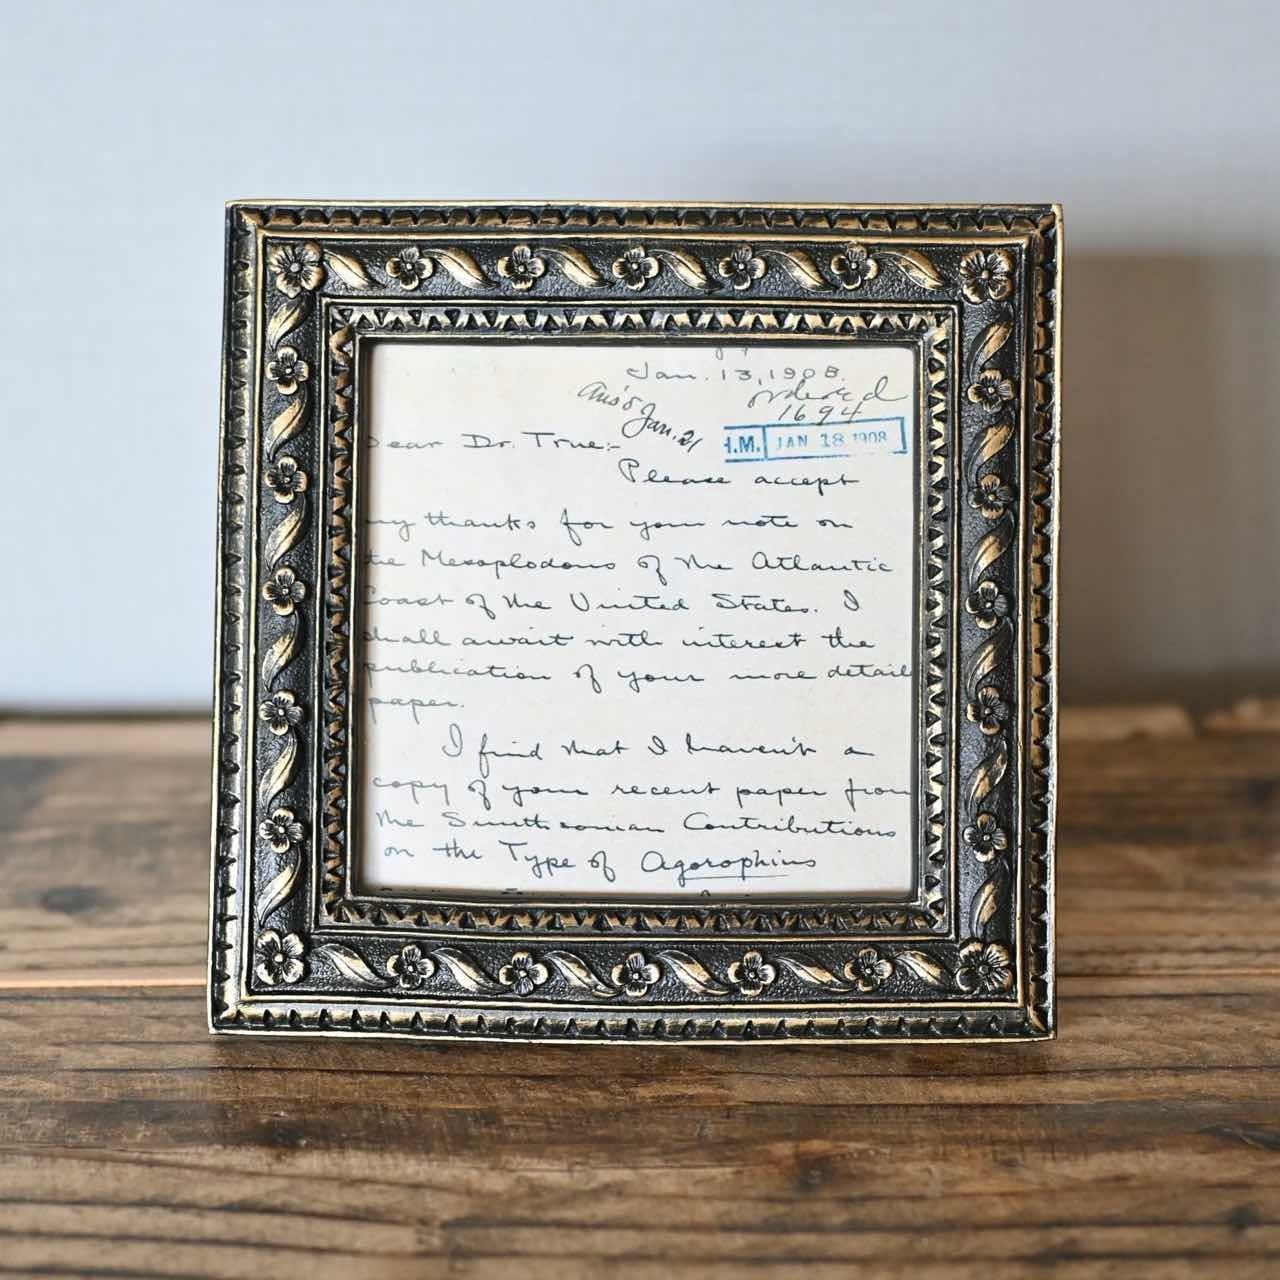 Jan. 13, 1908.
Ans'd Jan. 21
ordered
1694
H.M. JAN 18 1908
Dear Dr. True:-
Please accept
my thanks for your note on
the Mesoplodons of the Atlantic
Coast of the United States. I
shall await with interest the
publication of your more detail
paper.
I find that I haven't a
copy of your recent paper from
the Smithsonian Contributions
on the Type of Agorophius